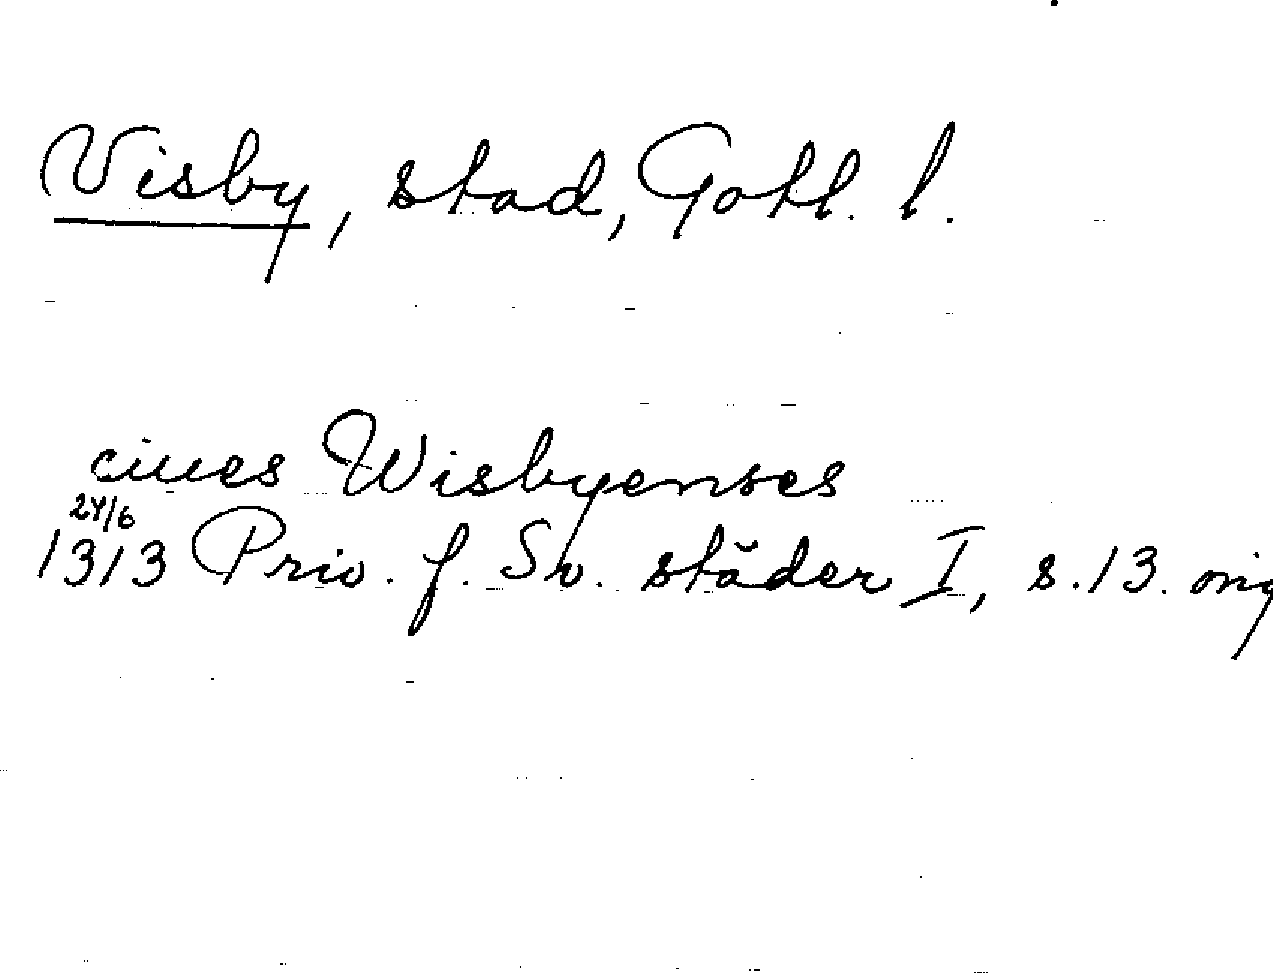 Visby, stad, Gotl. l.
ciues Wisbyenses
24/6
1313 Priv. f. Sv. städer I, s. 13. orig